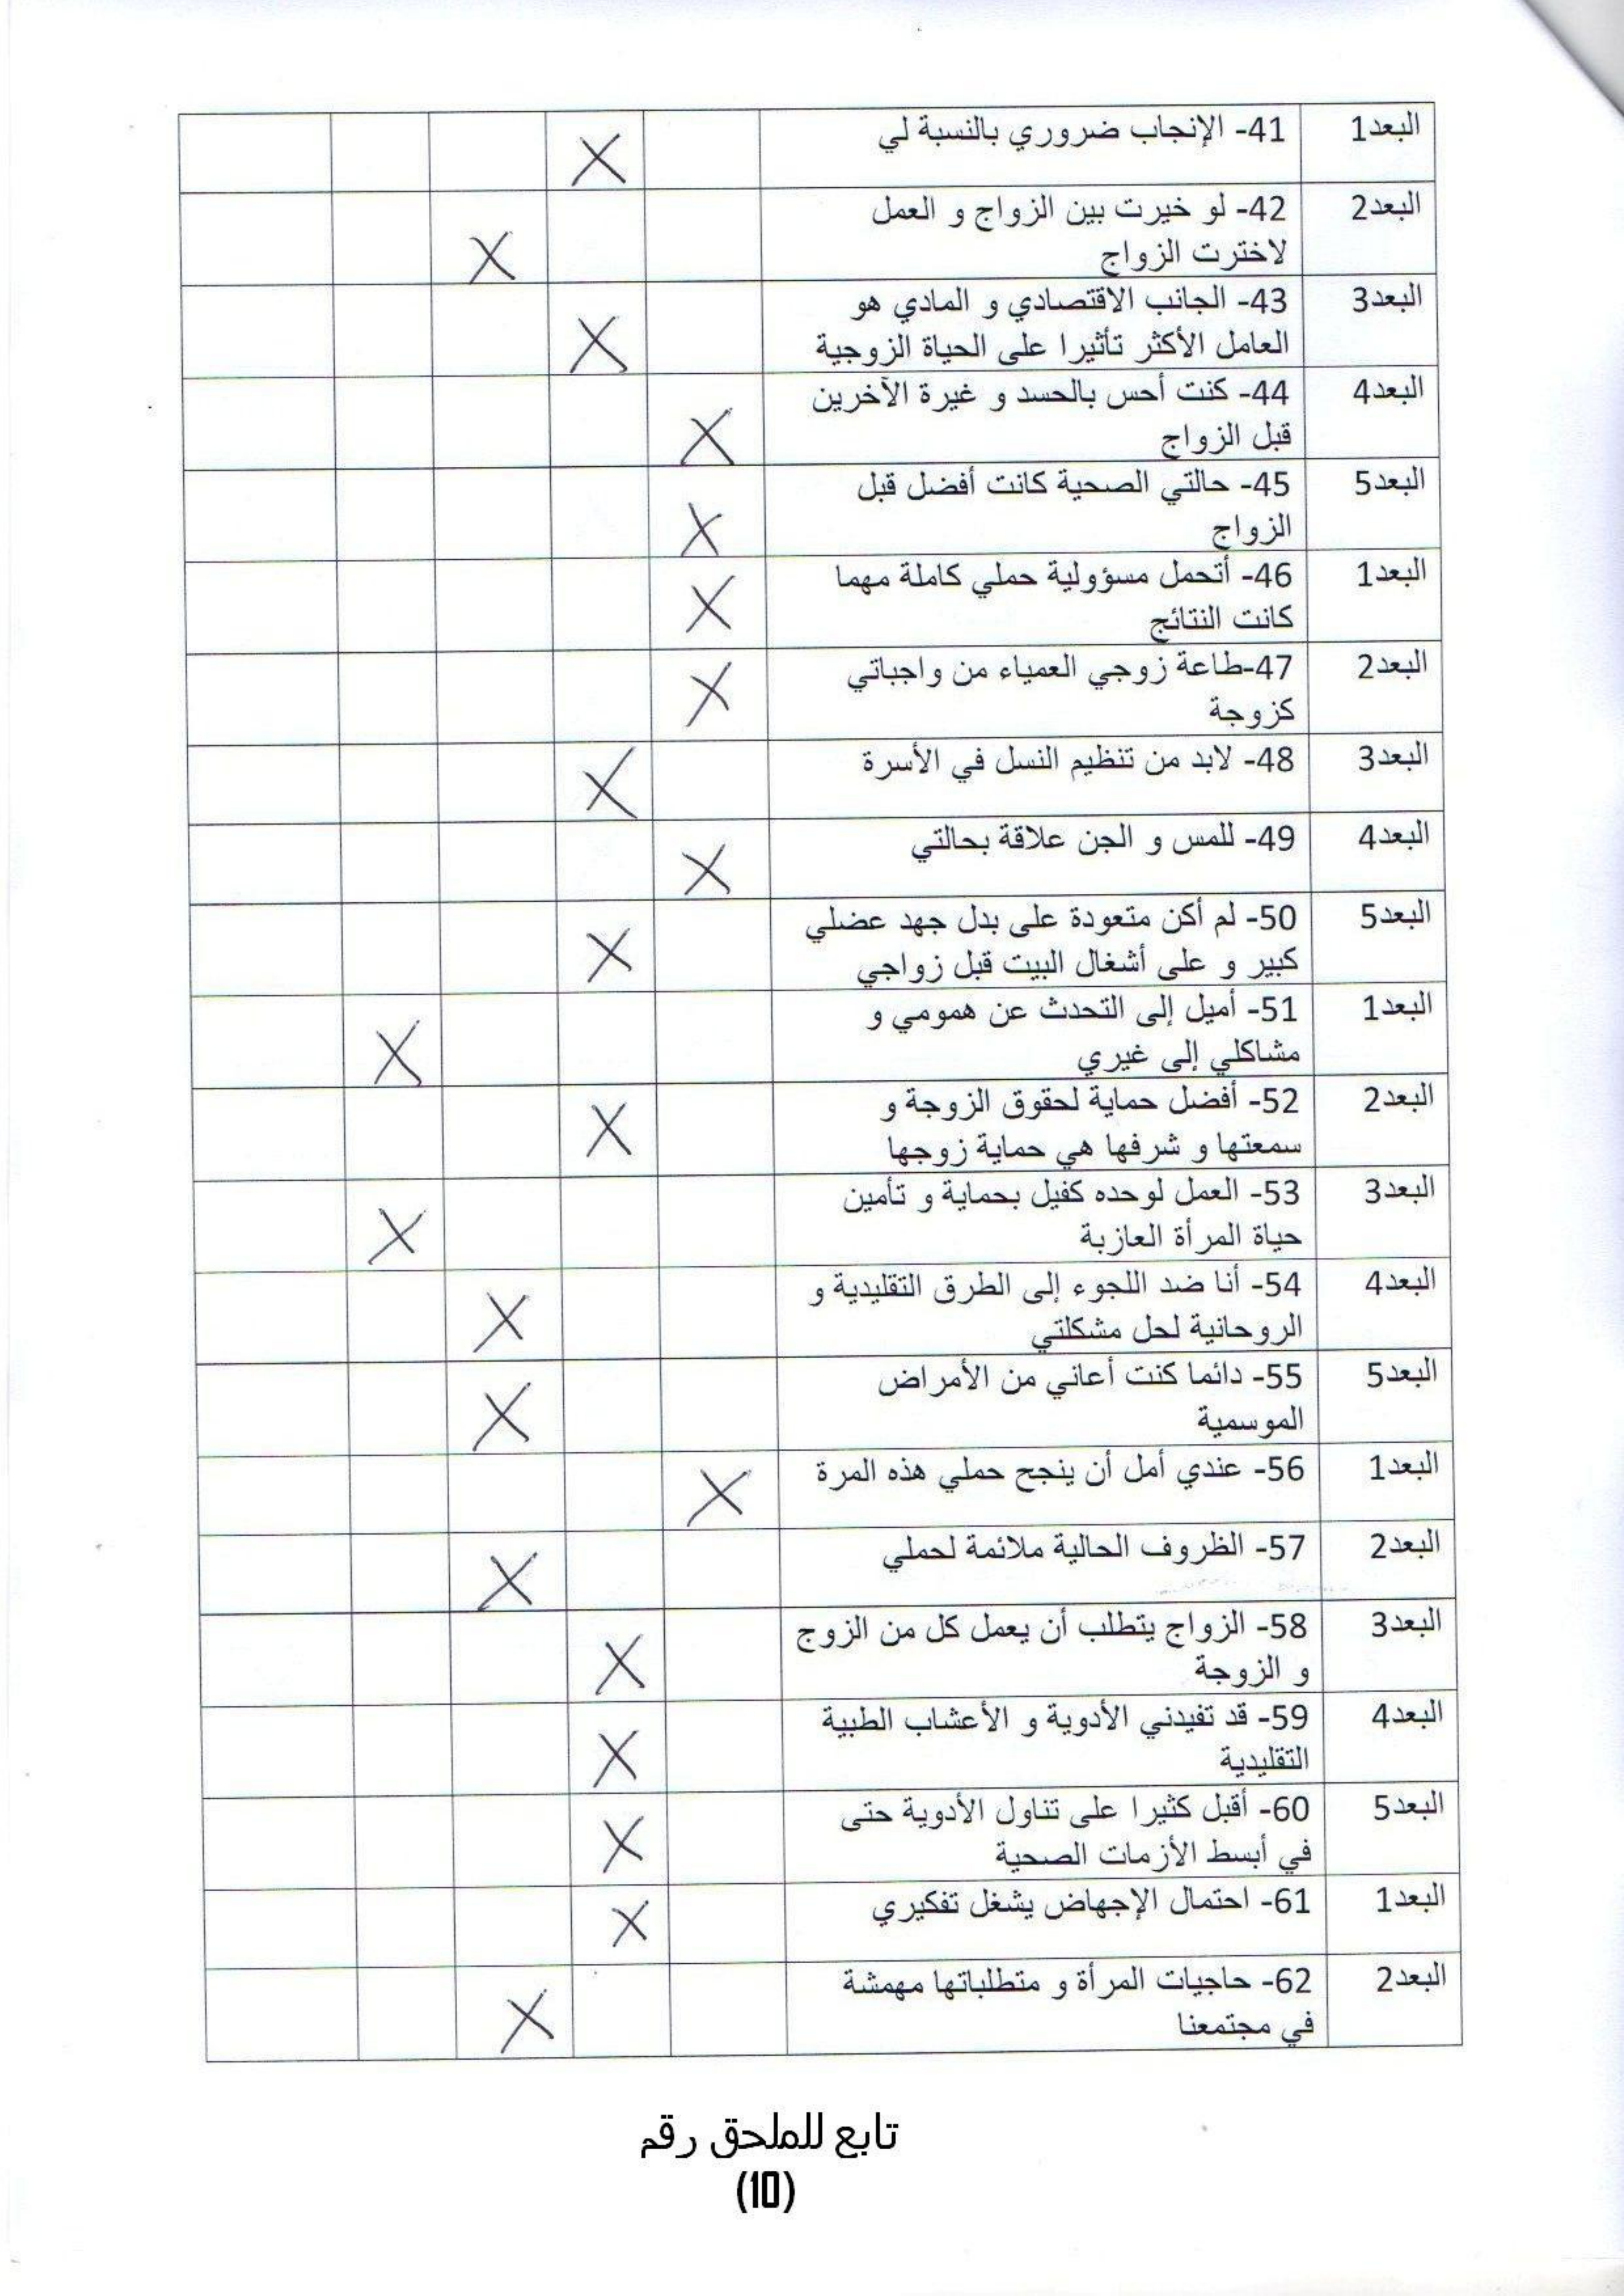 البعد1 41- الإنجاب ضروري بالنسبة لي X
البعد2 42- لو خيرت بين الزواج و العمل
لاخترت الزواج X
البعد3 43- الجانب الاقتصادي و المادي هو
العامل الأكثر تأثيرا على الحياة الزوجية X
البعد4 44- كنت أحس بالحسد و غيرة الآخرين
قبل الزواج X
البعد5 45- حالتي الصحية كانت أفضل قبل
الزواج X
البعد1 46- أتحمل مسؤولية حملي كاملة مهما
كانت النتائج X
البعد2 47-طاعة زوجي العمياء من واجباتي
كزوجة X
البعد3 48- لابد من تنظيم النسل في الأسرة X
البعد4 49- للمس و الجن علاقة بحالتي X
البعد5 50- لم أكن متعودة على بدل جهد عضلي
كبير و على أشغال البيت قبل زواجي X
البعد1 51- أميل إلى التحدث عن همومي و
مشاكلي إلى غيري X
البعد2 52- أفضل حماية لحقوق الزوجة و
سمعتها و شرفها هي حماية زوجها X
البعد3 53- العمل لوحده كفيل بحماية و تأمين
حياة المرأة العازبة X
البعد4 54- أنا ضد اللجوء إلى الطرق التقليدية و
الروحانية لحل مشكلتي X
البعد5 55- دائما كنت أعاني من الأمراض
الموسمية X
البعد1 56- عندي أمل أن ينجح حملي هذه المرة X
البعد2 57- الظروف الحالية ملائمة لحملي X
البعد3 58- الزواج يتطلب أن يعمل كل من الزوج
و الزوجة X
البعد4 59- قد تفيدني الأدوية و الأعشاب الطبية
التقليدية X
البعد5 60- أقبل كثيرا على تناول الأدوية حتى
في أبسط الأزمات الصحية X
البعد1 61- احتمال الإجهاض يشغل تفكيري X
البعد2 62- حاجيات المرأة و متطلباتها مهمشة
في مجتمعنا X
تابع للملحق رقم
(10)